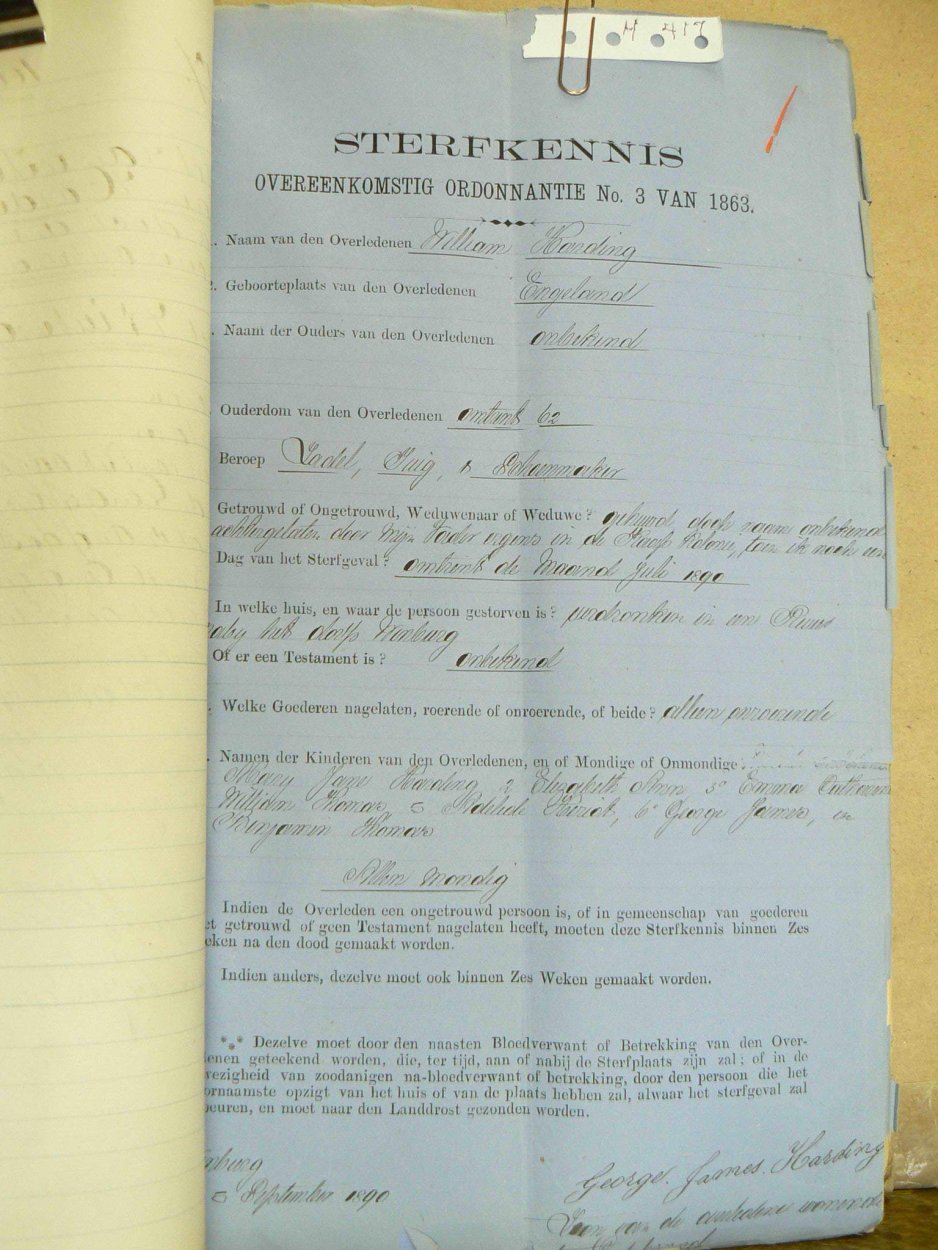 H 417
STERFKENNIS
OVEREENKOMSTIG ORDONNANTIE No. 3 VAN 1863.
. Naam van den Overledenen William Harding
. Geboorteplaats van den Overledenen Engeland
. Naam der Ouders van den Overledenen onbekend
Ouderdom van den Overledenen omtrent 62
Beroep Zadel, Tuig, & Schoenmaker
Getrouwd of Ongetrouwd, Weduwenaar of Weduwe? gehuwd, doch naam onbekend
achtergelaten door mijn Vader ergens in de Kaap Kolonie, toen ik noch een
Dag van het Sterfgeval? omtrent de Maand Juli 1890
In welke huis, en waar de persoon gestorven is? verdronken in een Rivier
naby het dorp Winburg
Of er een Testament is? onbekend
. Welke Goederen nagelaten, roerende of onroerende, of beide? alleen onroerende
. Namen der Kinderen van den Overledenen, en of Mondige of Onmondige:
Mary Jane Harding 2 Elizabeth Ann, 3 Emma Catherina
Thomas, 5 6 George James, en
Benjamin Thomas
Allen mondig
Indien de Overleden een ongetrouwd persoon is, of in gemeenschap van goederen
et getrouwd of geen Testament nagelaten heeft, moeten deze Sterfkennis binnen Zes
eken na den dood gemaakt worden.
Indien anders, dezelve moet ook binnen Zes Weken gemaakt worden.
*** Dezelve moet door den naasten Bloedverwant of Betrekking van den Over-
enen geteekend worden, die, ter tijd, aan of nabij de Sterfplaats zijn zal; of in de
wezigheid van zoodanigen na-bloedverwant of betrekking, door den persoon die het
ornaamste opzigt van het huis of van de plaats hebben zal, alwaar het sterfgeval zal
beuren, en moet naar den Landdrost gezonden worden.
nburg
5 September 1890
George James Harding
Zoon van de overledene wonende